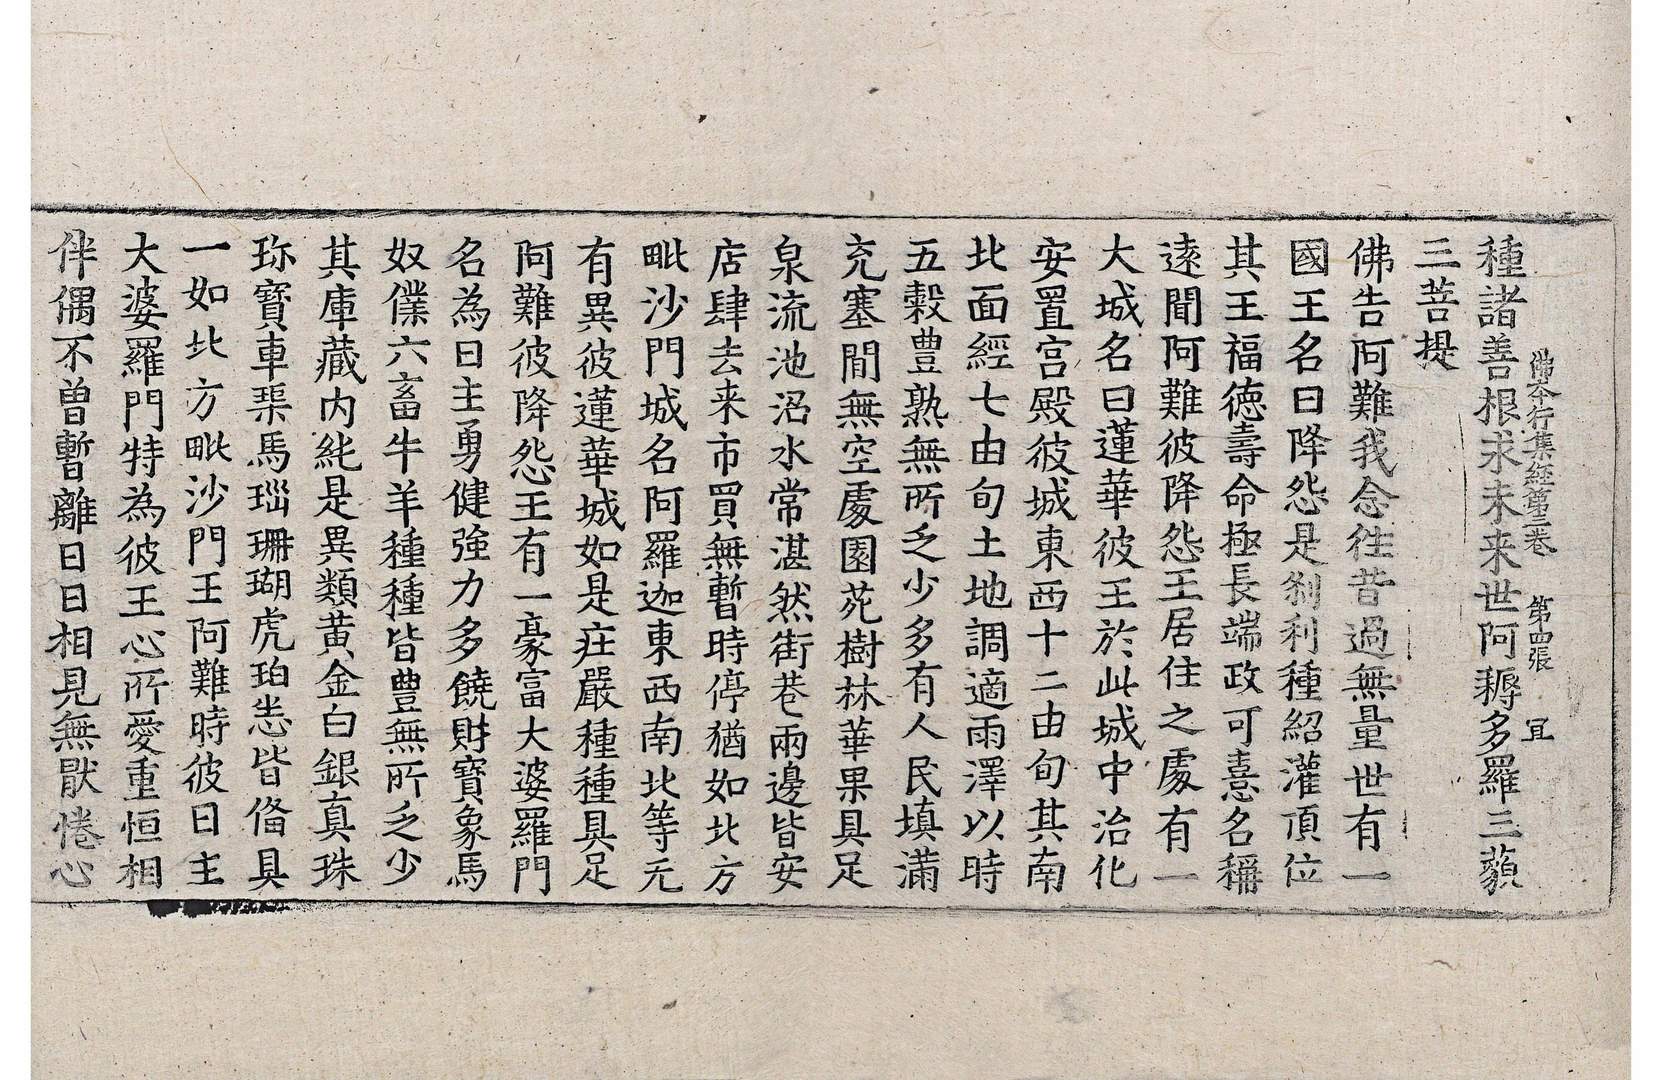 佛本行集經第三卷　第四張　冝
種諸善根求未来世阿耨多羅三藐
三菩提
佛告阿難我念徃昔過無量世有一
國王名曰降怨是刹利種紹灌頂位
其王福徳壽命極長端政可憙名稱
逺聞阿難彼降怨王居住之處有一
大城名曰蓮華彼王於此城中治化
安置宫殿彼城東西十二由旬其南
北面經七由旬土地調適雨澤以時
五穀豊熟無所乏少多有人民填滿
充塞間無空處園苑樹林華果具足
泉流池沼水常湛然街巷兩邊皆安
店肆去来市買無暫時停猶如北方
毗沙門城名阿羅迦東西南北等无
有異彼蓮華城如是庄嚴種種具足
阿難彼降怨王有一豪富大婆羅門
名為日主勇健強力多饒財寶象馬
奴僕六畜牛羊種種皆豊無所乏少
其庫藏内純是異類黄金白銀真珠
珎寶車𤦲馬瑙珊瑚虎珀悉皆俻具
一如北方毗沙門王阿難時彼日主
大婆羅門特為彼王心所愛重恒相
伴偶不曽暫離日日相見無猒惓心